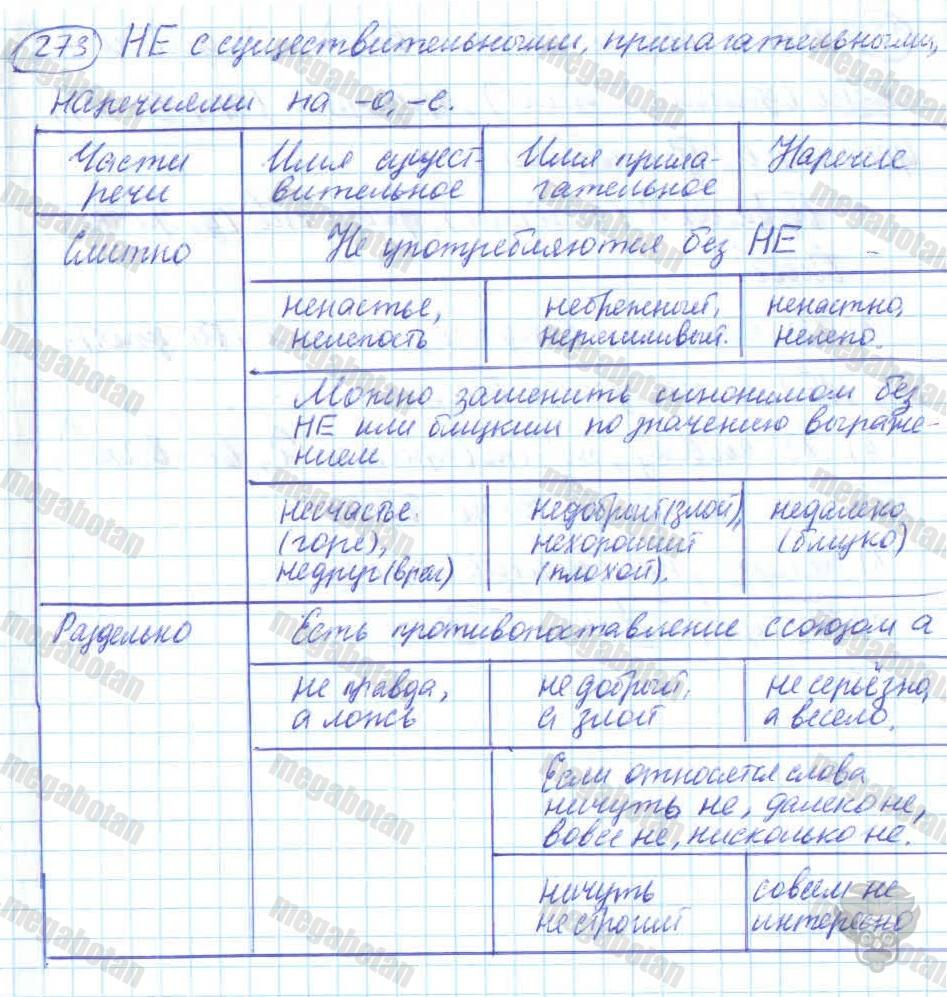 273 НЕ с существительными, прилагательными,
наречиями на -о, -е.
Части речи
Имя существительное
Имя прилагательное
Наречие
Слитно
Не употребляются без НЕ
ненастье,
нелепость
небрежный,
неряшливый.
ненастно,
нелепо.
Можно заменить синонимом без
НЕ или близким по значению выраже-
нием
несчастье
(горе),
недруг (враг)
недобрый (злой),
нехороший
(плохой).
недалеко
(близко)
Раздельно
Есть противопоставление с союзом а
не правда,
а ложь
не добрый,
а злой
не серьёзно,
а весело.
Если относятся слова
ничуть не, далеко не,
вовсе не, нисколько не.
ничуть
не строгий
совсем не
интересно
megabotan